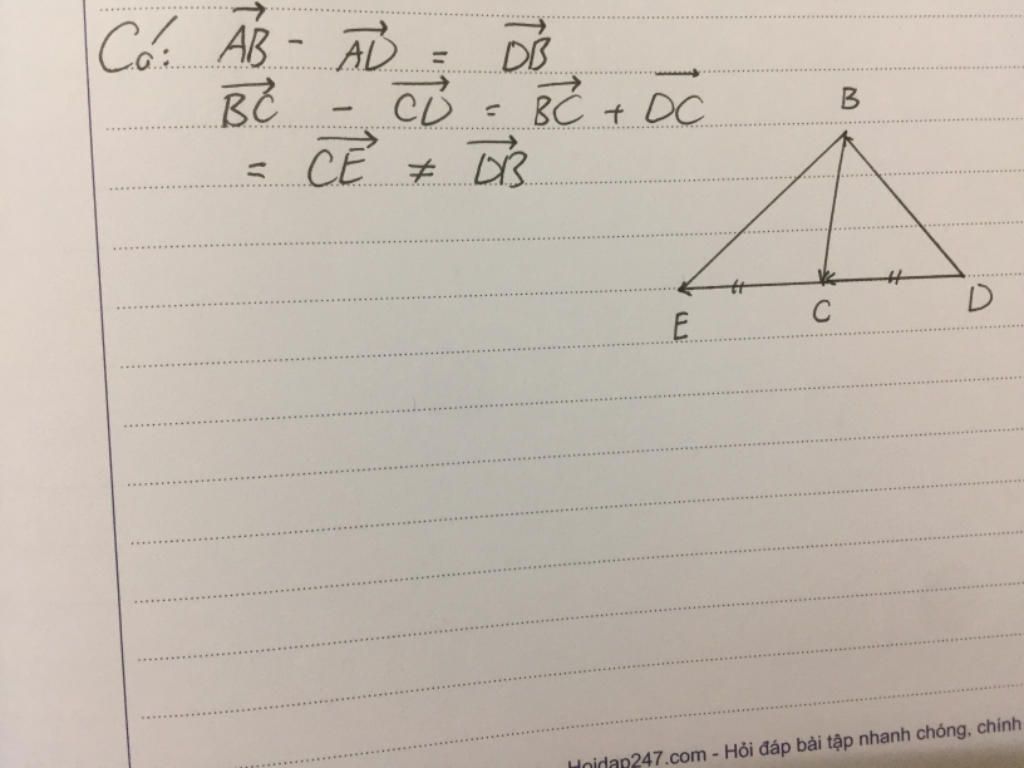 Có: $\overrightarrow{AB} - \overrightarrow{AD} = \overrightarrow{DB}$
$\overrightarrow{BC} - \overrightarrow{CD} = \overrightarrow{BC} + \overrightarrow{DC}$
$= \overrightarrow{CE} \neq \overrightarrow{DB}$
B
E
C
D
Hoidap247.com - Hỏi đáp bài tập nhanh chóng, chính